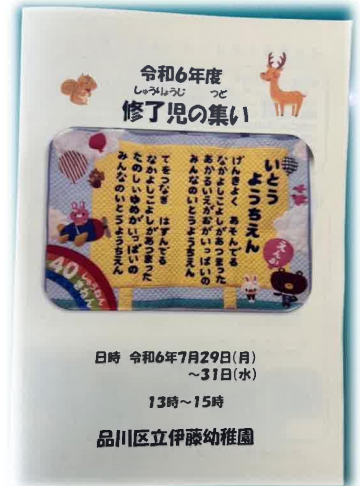 令和6年度
しゅうりょうじ つど
修了児の集い
いとう
ようちえん
げんきよく あそんでる
なかよしこよしがあつまった
あかるいえがおがいっぱいの
みんなのいとうようちえん
てをつなぎ はずんでる
なかよしこよしがあつまった
たのしいゆめがいっぱいの
みんなのいとうようちえん
えんか
40
しゅうねん
きねん
日時 令和6年7月29日(月)
～31日(水)
13時～15時
品川区立伊藤幼稚園